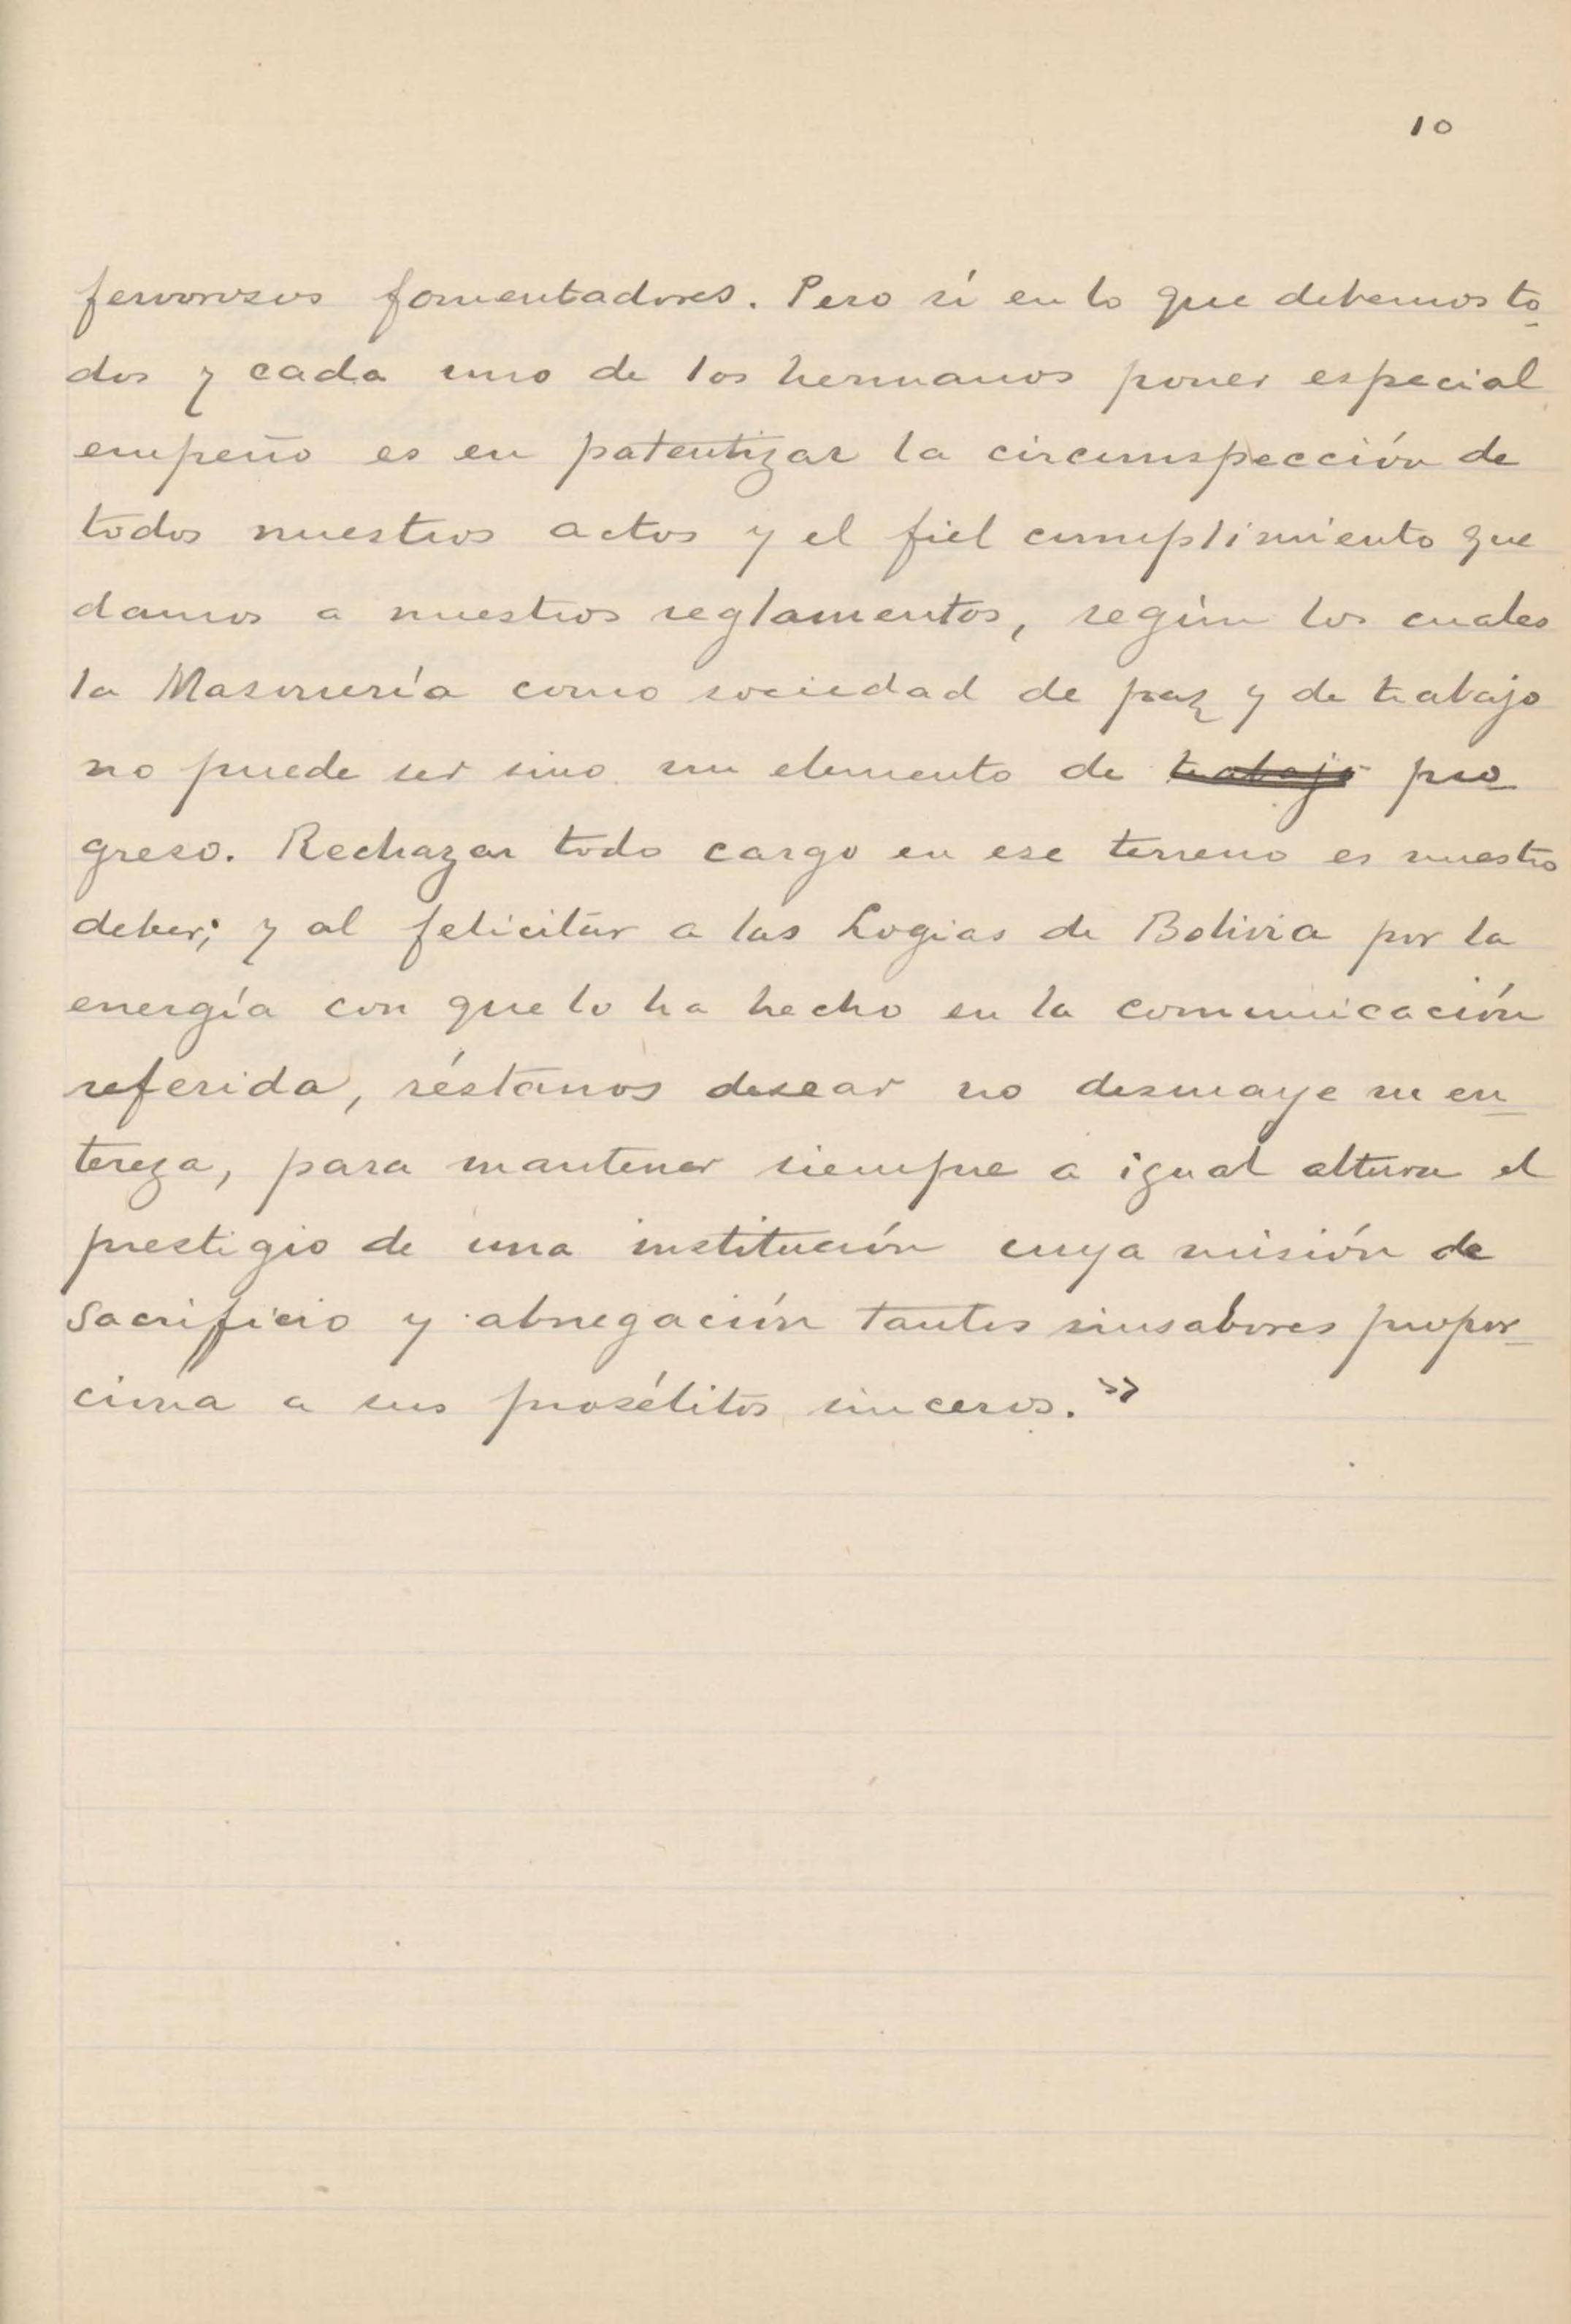 10
fervorosos fomentadores. Pero sí en lo que debemos to-
dos y cada uno de los hermanos poner especial
empeño es en patentizar la circunspección de
todos nuestros actos y el fiel cumplimiento que
damos a nuestros reglamentos, según los cuales
la Masonería como sociedad de paz y de trabajo
no puede ser sino un elemento de trabajo pro-
greso. Rechazar todo cargo en ese terreno es nuestro
deber; y al felicitar a las Logias de Bolivia por la
energía con que lo ha hecho en la comunicación
referida, réstanos desear no desmaye su en-
tereza, para mantener siempre a igual altura el
prestigio de una institución cuya misión de
sacrificio y abnegación tantos sinsabores propor-
ciona a sus prosélitos sinceros.»